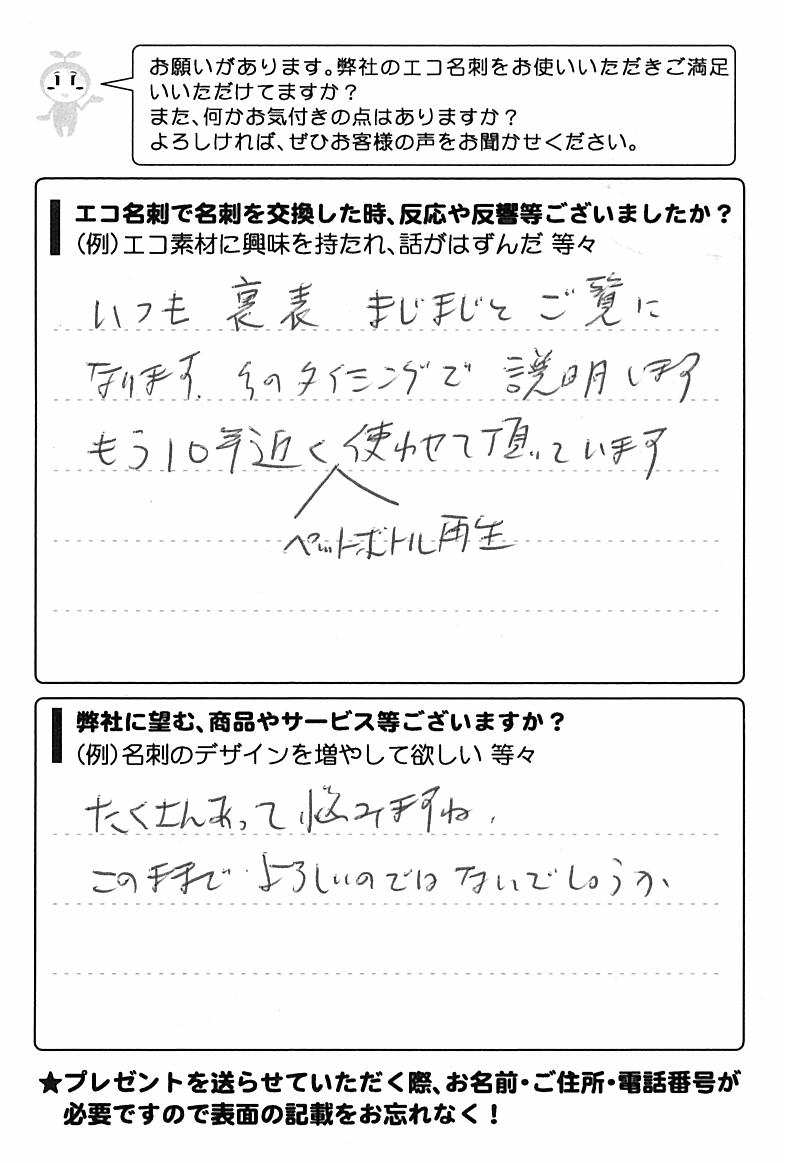 お願いがあります。弊社のエコ名刺をお使いいただきご満足
いいただけてますか？
また、何かお気付きの点はありますか？
よろしければ、ぜひお客様の声をお聞かせください。
エコ名刺で名刺を交換した時、反応や反響等ございましたか？
（例）エコ素材に興味を持たれ、話がはずんだ 等々
いつも 裏表 まじまじと ご覧に
なります。そのタイミングで 説明します
もう10年近く使わせて頂いています
ペットボトル再生
弊社に望む、商品やサービス等ございますか？
（例）名刺のデザインを増やして欲しい 等々
たくさんあって悩みますね。
このままで よろしいのでは ないでしょうか
★プレゼントを送らせていただく際、お名前・ご住所・電話番号が
必要ですので表面の記載をお忘れなく！